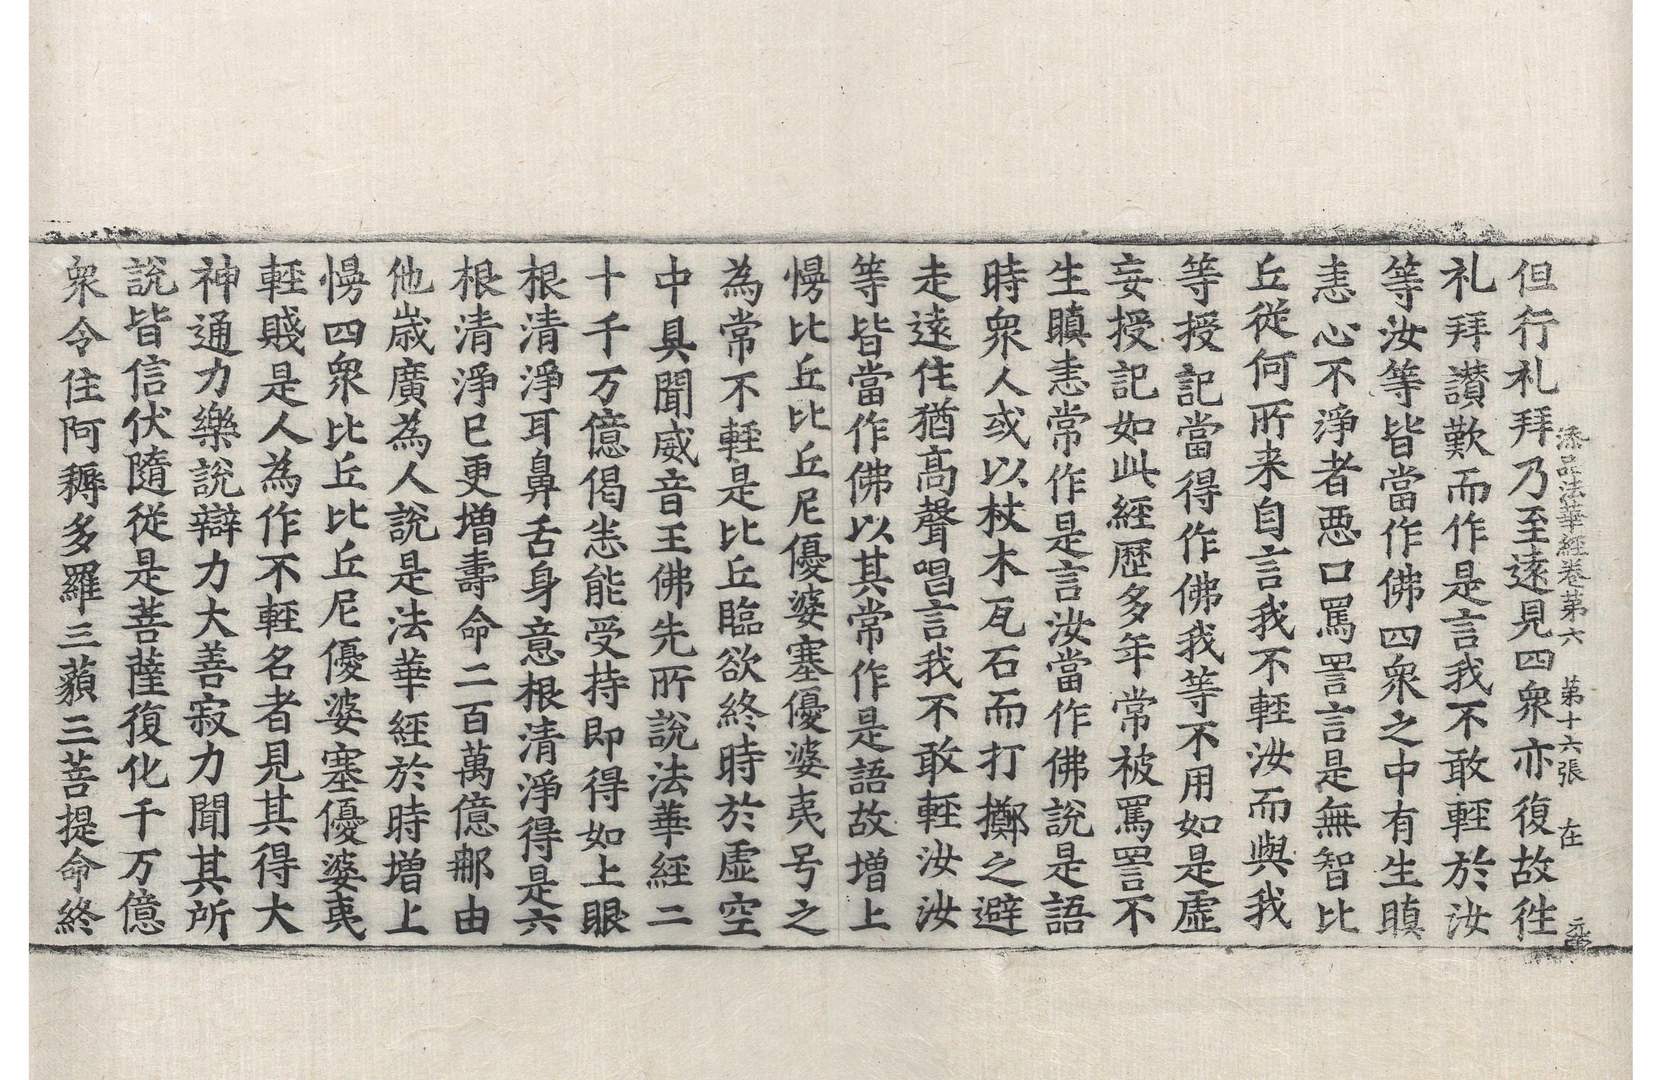 添品法華經卷第六　第十六張　在
但行礼拜乃至遠見四衆亦復故徃
礼拜讃歎而作是言我不敢輕於汝
等汝等皆當作佛四衆之中有生瞋
恚心不淨者惡口罵詈言是無智比
丘従何所来自言我不輕汝而與我
等授記當得作佛我等不用如是虛
妄授記如此經歷多年常被罵詈不
生瞋恚常作是言汝當作佛說是語
時衆人或以杖木瓦石而打擲之避
走遠住猶髙聲唱言我不敢輕汝汝
等皆當作佛以其常作是語故增上
慢比丘比丘尼優婆塞優婆夷号之
為常不輕是比丘臨欲終時於虛空
中具聞威音王佛先所說法華經二
十千万億偈悉能受持即得如上眼
根清淨耳鼻舌身意根清淨得是六
根清淨已更增壽命二百萬億那由
他歲廣為人說是法華經於時增上
慢四衆比丘比丘尼優婆塞優婆夷
輕賤是人為作不輕名者見其得大
神通力樂說辯力大善寂力聞其所
說皆信伏隨從是菩薩復化千万億
衆令住阿耨多羅三藐三菩提命終